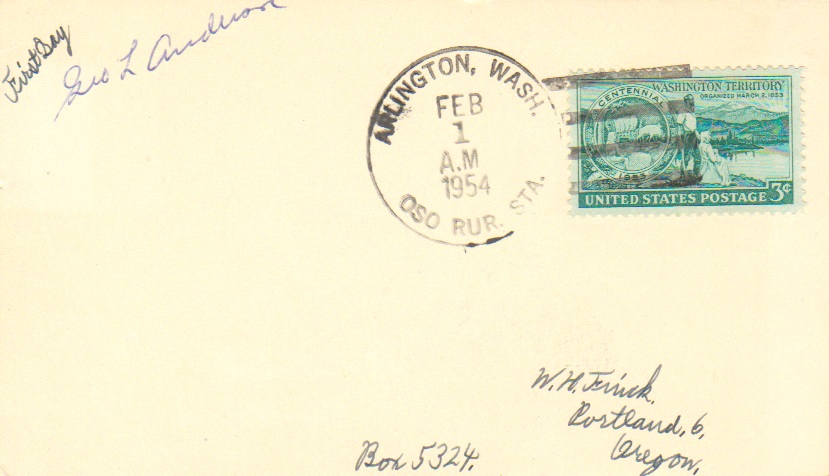 First Day
Geo L Anderson
ARLINGTON, WASH.
FEB
1
A.M
1954
OSO RUR. STA.
CENTENNIAL
1953
WASHINGTON TERRITORY
ORGANIZED MARCH 2, 1853
UNITED STATES POSTAGE 3¢
W. H. Finck.
Portland, 6,
Box 5324. Oregon,